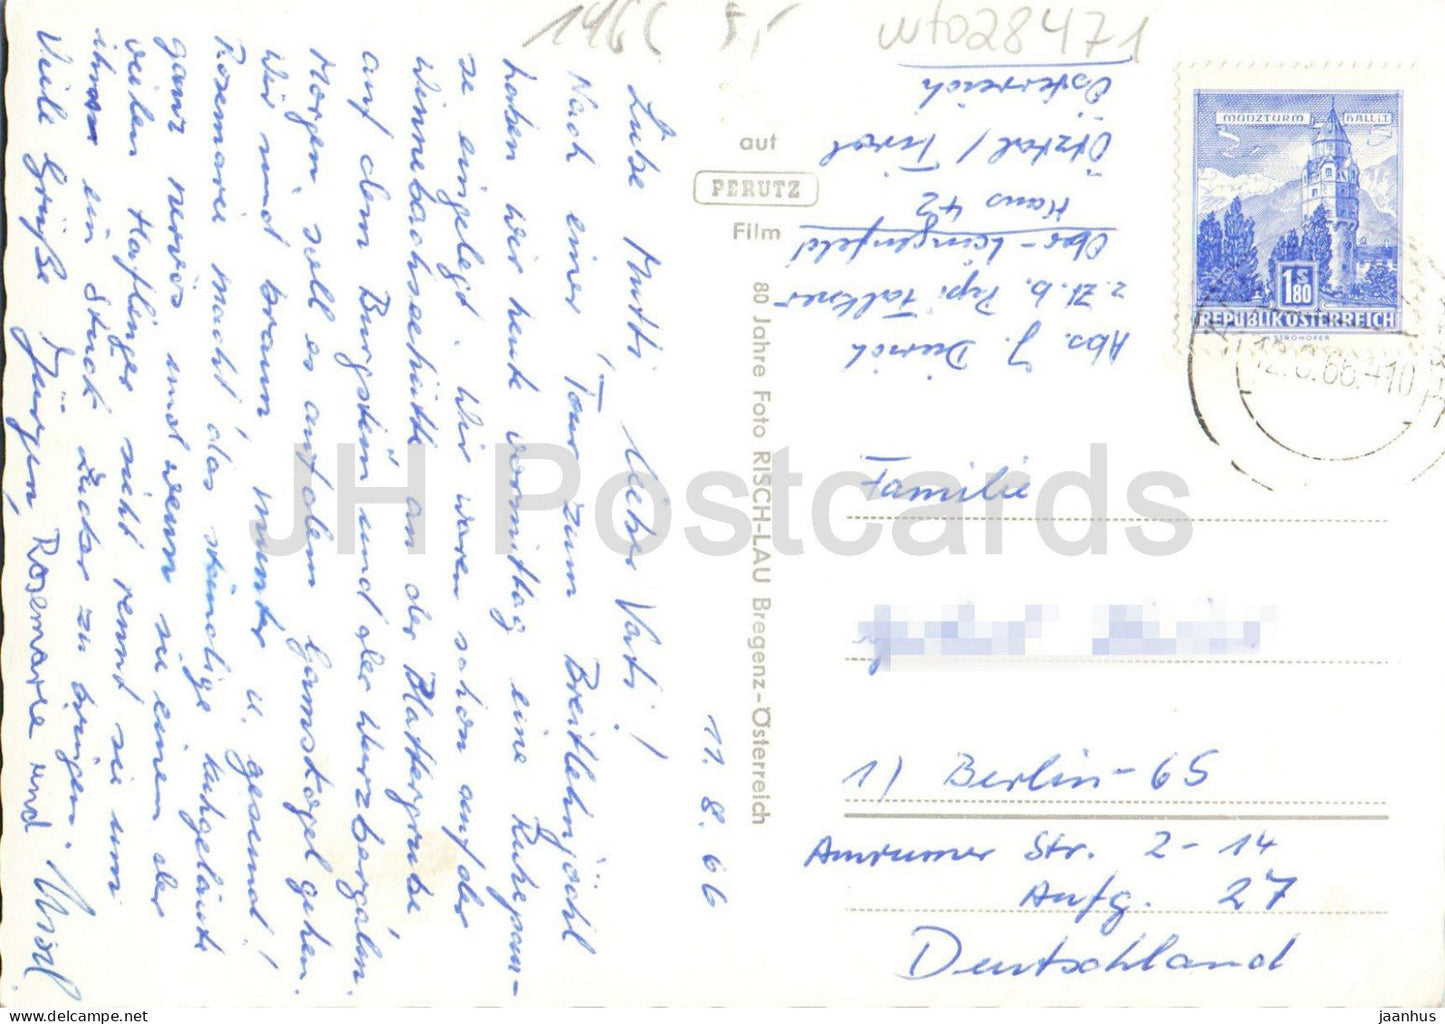 1966 5,- wto28471
11.8.66
Liebe Mutti, lieber Vati!
Nach einer Tour zum Breitlehnjöchl
haben wir heute vormittag eine Ruhepau-
se eingelegt. Wir waren schon auf der
Winnebachseehütte an der Blattergrube,
auf dem Burgstein und der Wurzbergalm.
Morgen soll es auf den Gamskogel gehen.
Wir sind braun, munter u. gesund!
Rosemarie macht das ständige Kuhgeläute
ganz nervös und wenn sie einen der
vielen Haflinger sieht rennt sie um
ihm ein Stück Zucker zu bringen.
Viele Grüße Jürgen, Rosemarie und
Abs. J.
z. Zt. b. Pepi Falkner
Ober-Längenfeld
Haus 42
Ötztal / Tirol
Österreich
auf
PERUTZ
Film
80 Jahre Foto RISCH-LAU Bregenz-Österreich
MÜNZTURM HALL i.T.
1.80 S
REPUBLIK ÖSTERREICH
STROHOFER
12.8.66.-10
Familie
1) Berlin-65
Amrumer Str. 2-14
Aufg. 27
Deutschland
JH Postcards
delcampe.net
jaanhus